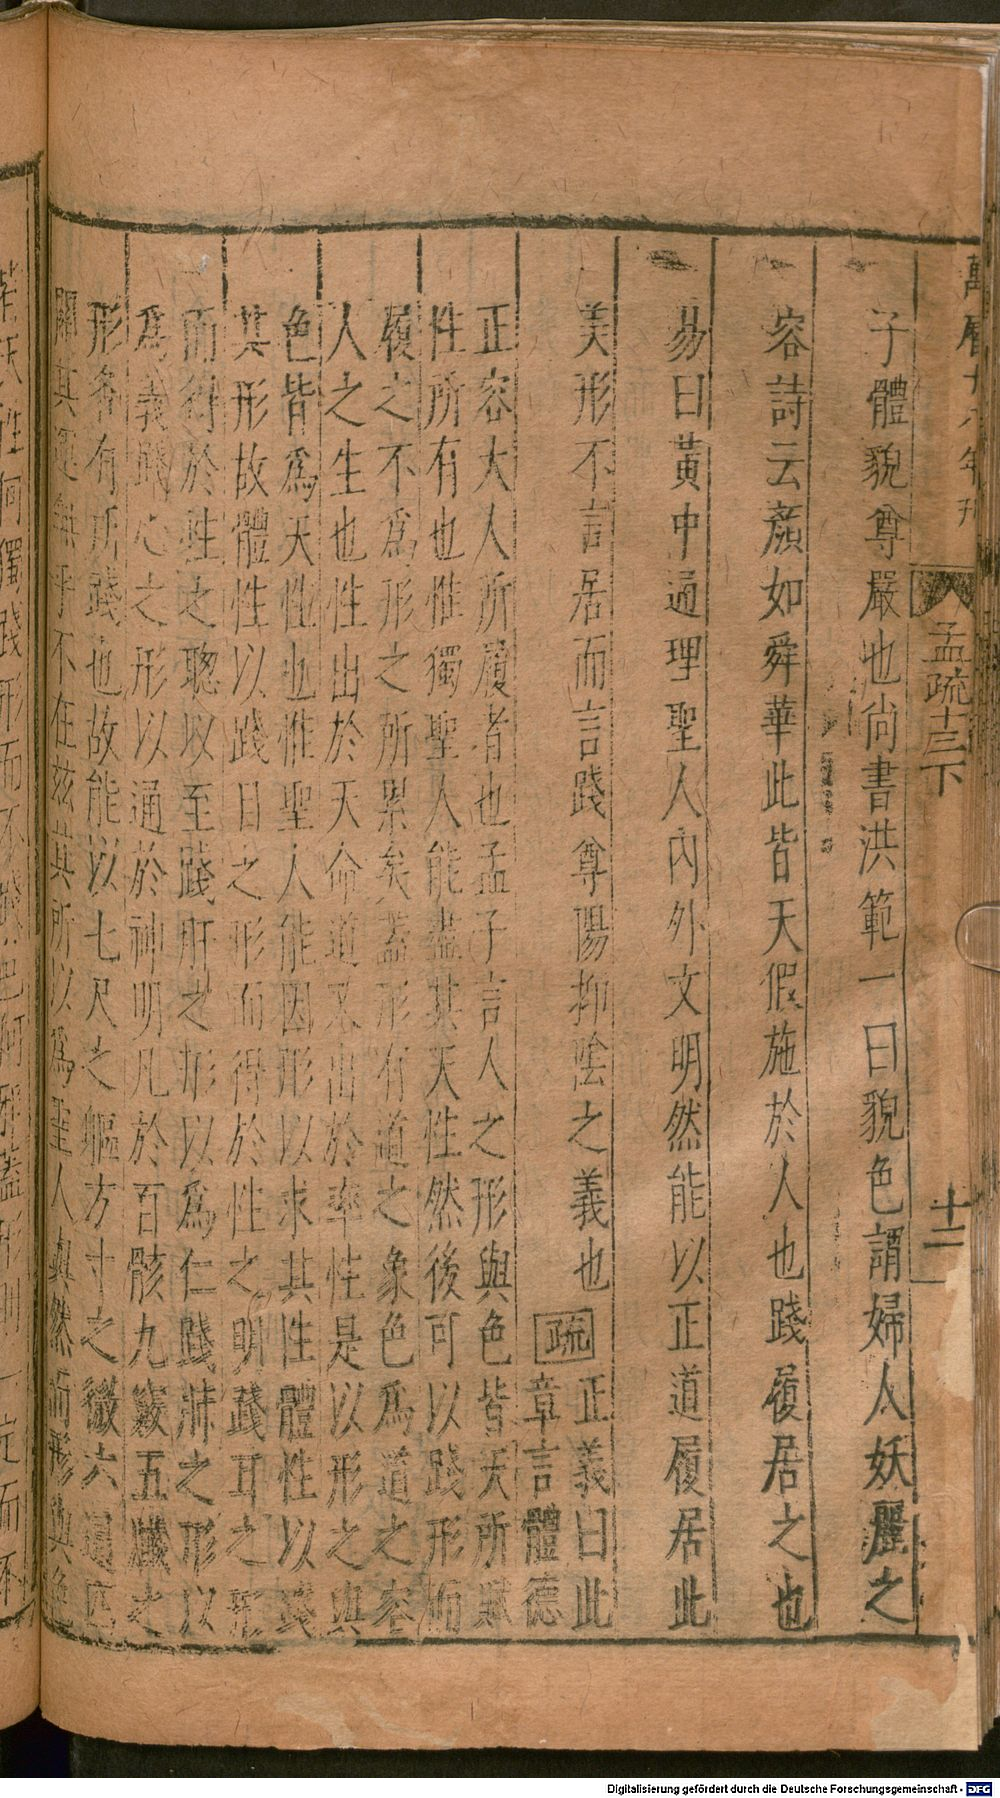 萬曆十八年刊
孟疏十三下
十二
子體貌尊嚴也尚書洪範一曰貌色謂婦人妖麗之
容詩云顏如舜華此皆天假施於人也踐履居之也
易曰黃中通理聖人內外文明然能以正道履居此
美形不言居而言踐尊陽抑陰之義也
疏
正義曰此
章言體德
正容大人所履者也孟子言人之形與色皆天所賦
性所有也惟獨聖人能盡其天性然後可以踐形而
履之不為形之所累矣蓋形有道之象色為道之容
人之生也性出於天命道又出於率性是以形之與
色皆為天性也惟聖人能因形以求其性體性以踐
其形故體性以踐目之形而得於性之明踐耳之形
而得於性之聰以至踐肝之形以為仁踐肺之形以
為義踐心之形以通於神明凡於百骸九竅五臟之
形各有所踐也故能以七尺之軀方寸之微六通四
闢其運無乎不在茲其所以為聖人與然而形與色
性何獨踐形而不踐色何邪蓋形則一定而不
Digitalisierung gefördert durch die Deutsche Forschungsgemeinschaft - DFG